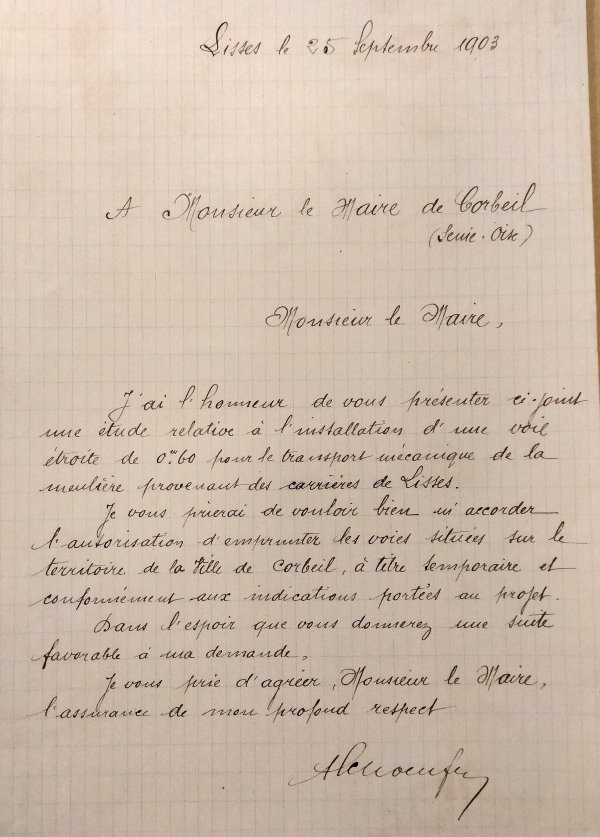 Lisses le 25 Septembre 1903
A Monsieur le Maire de Corbeil
(Seine-Oise)
Monsieur le Maire,
J'ai l'honneur de vous présenter ci-joint
une étude relative à l'installation d'une voie
étroite de 0m60 pour le transport mécanique de la
meulière provenant des carrières de Lisses.
Je vous prierai de vouloir bien m'accorder
l'autorisation d'emprunter les voies situées sur le
territoire de la Ville de Corbeil, à titre temporaire et
conformément aux indications portées au projet.
Dans l'espoir que vous donnerez une suite
favorable à ma demande,
Je vous prie d'agréer, Monsieur le Maire,
l'assurance de mon profond respect